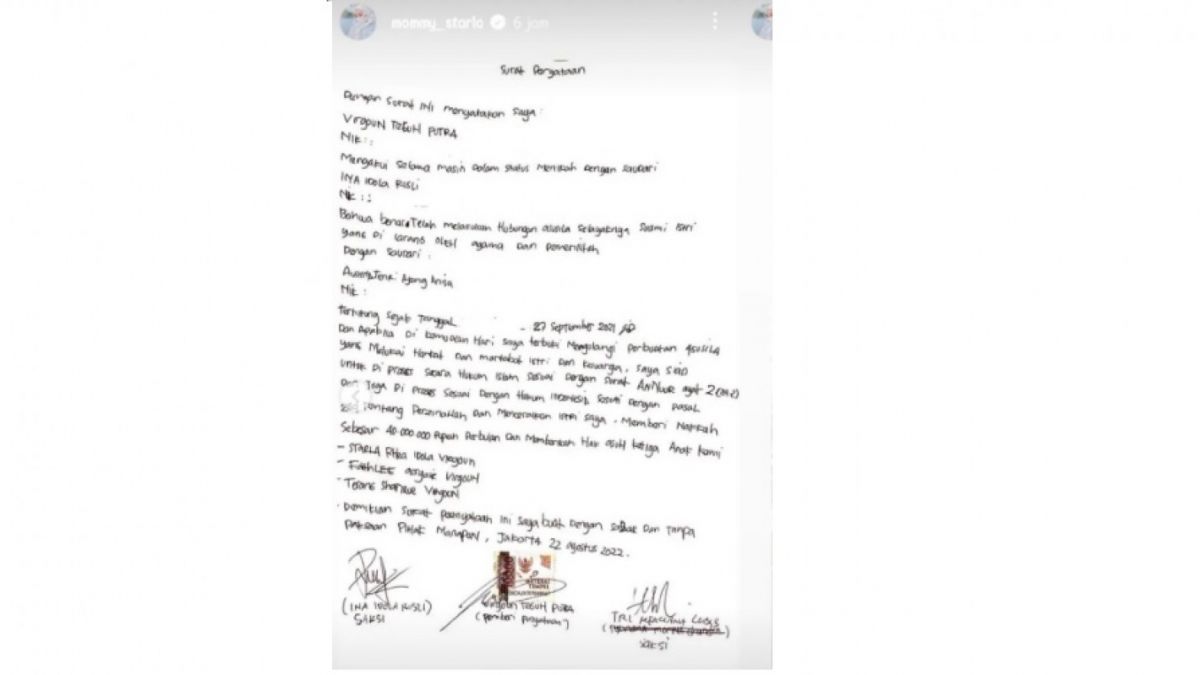 mommy_starla 6 jam
Surat Pernyataan
Dengan Surat INI menyatakan Saya :
VIRGOUN TEGUH PUTRA
NIK : :
Mengakui Selama masih dalam status Menikah Dengan Saudari
INA IDOLA RUSLI
NIK : :
Bahwa benar Telah melakukan Hubungan asusila Selayaknya Suami Istri
yang Di larang oleh agama Dan pemerintah
Dengan Saudari :
Tenri Ajeng Anisa
NIK :
Terhitung Sejak Tanggal - 27 September 2021
Dan Apabila Di kemudian Hari Saya terbukti Mengulangi Perbuatan Asusila
yang Melukai Harkat Dan martabat istri Dan Keluarga, Saya SIAP
untuk Di proses Secara Hukum Islam Sesuai Dengan Surat AnNuur ayat 2
Dan Juga Di proses Sesuai Dengan Hukum Indonesia Sesuai Dengan pasal
Tentang Perzinahan Dan Menceraikan istri Saya. Memberi Nafkah
Sebesar 40.000.000 Rupiah Perbulan Dan Memberikan Hak asuh ketiga Anak Kami
- STARLA Rhea Idola Virgoun
- Virgoun
- Virgoun
Demikian Surat pernyataan Ini Saya buat Dengan Sadar Dan Tanpa
paksaan Pihak Manapun, Jakarta 22 Agustus 2022.
METERAI
TEMPEL
(INA IDOLA RUSLI)
SAKSI
VIRGOUN TEGUH PUTRA
(pemberi pernyataan)
TRI
SAKSI